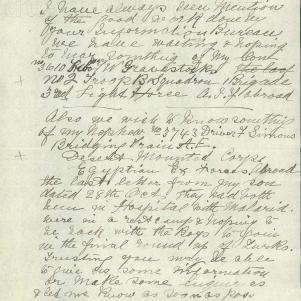 I have always seen mention
of the good work done by
your Information Bureau
we have waiting & hoping
to hear something of My
No 2 Troop B Squadron Brigade
3rd Light Horse A.I.F. abroad
Also we wish to know something
of my Nephew No 3743 Driver F Simons
Bridging Train A.F.
Desert Mounted Corps
Egyptian Ex Forces, Abroad
the last letter from my son
dated 28th Oct. they had both
been in Hospital with Malaria
were in a rest camp & hoping to
be back with the Boys to join
in the final round up of Turks.
Trusting you may be able
to give us some information
or make some enquiries
& let us know as soon as pos